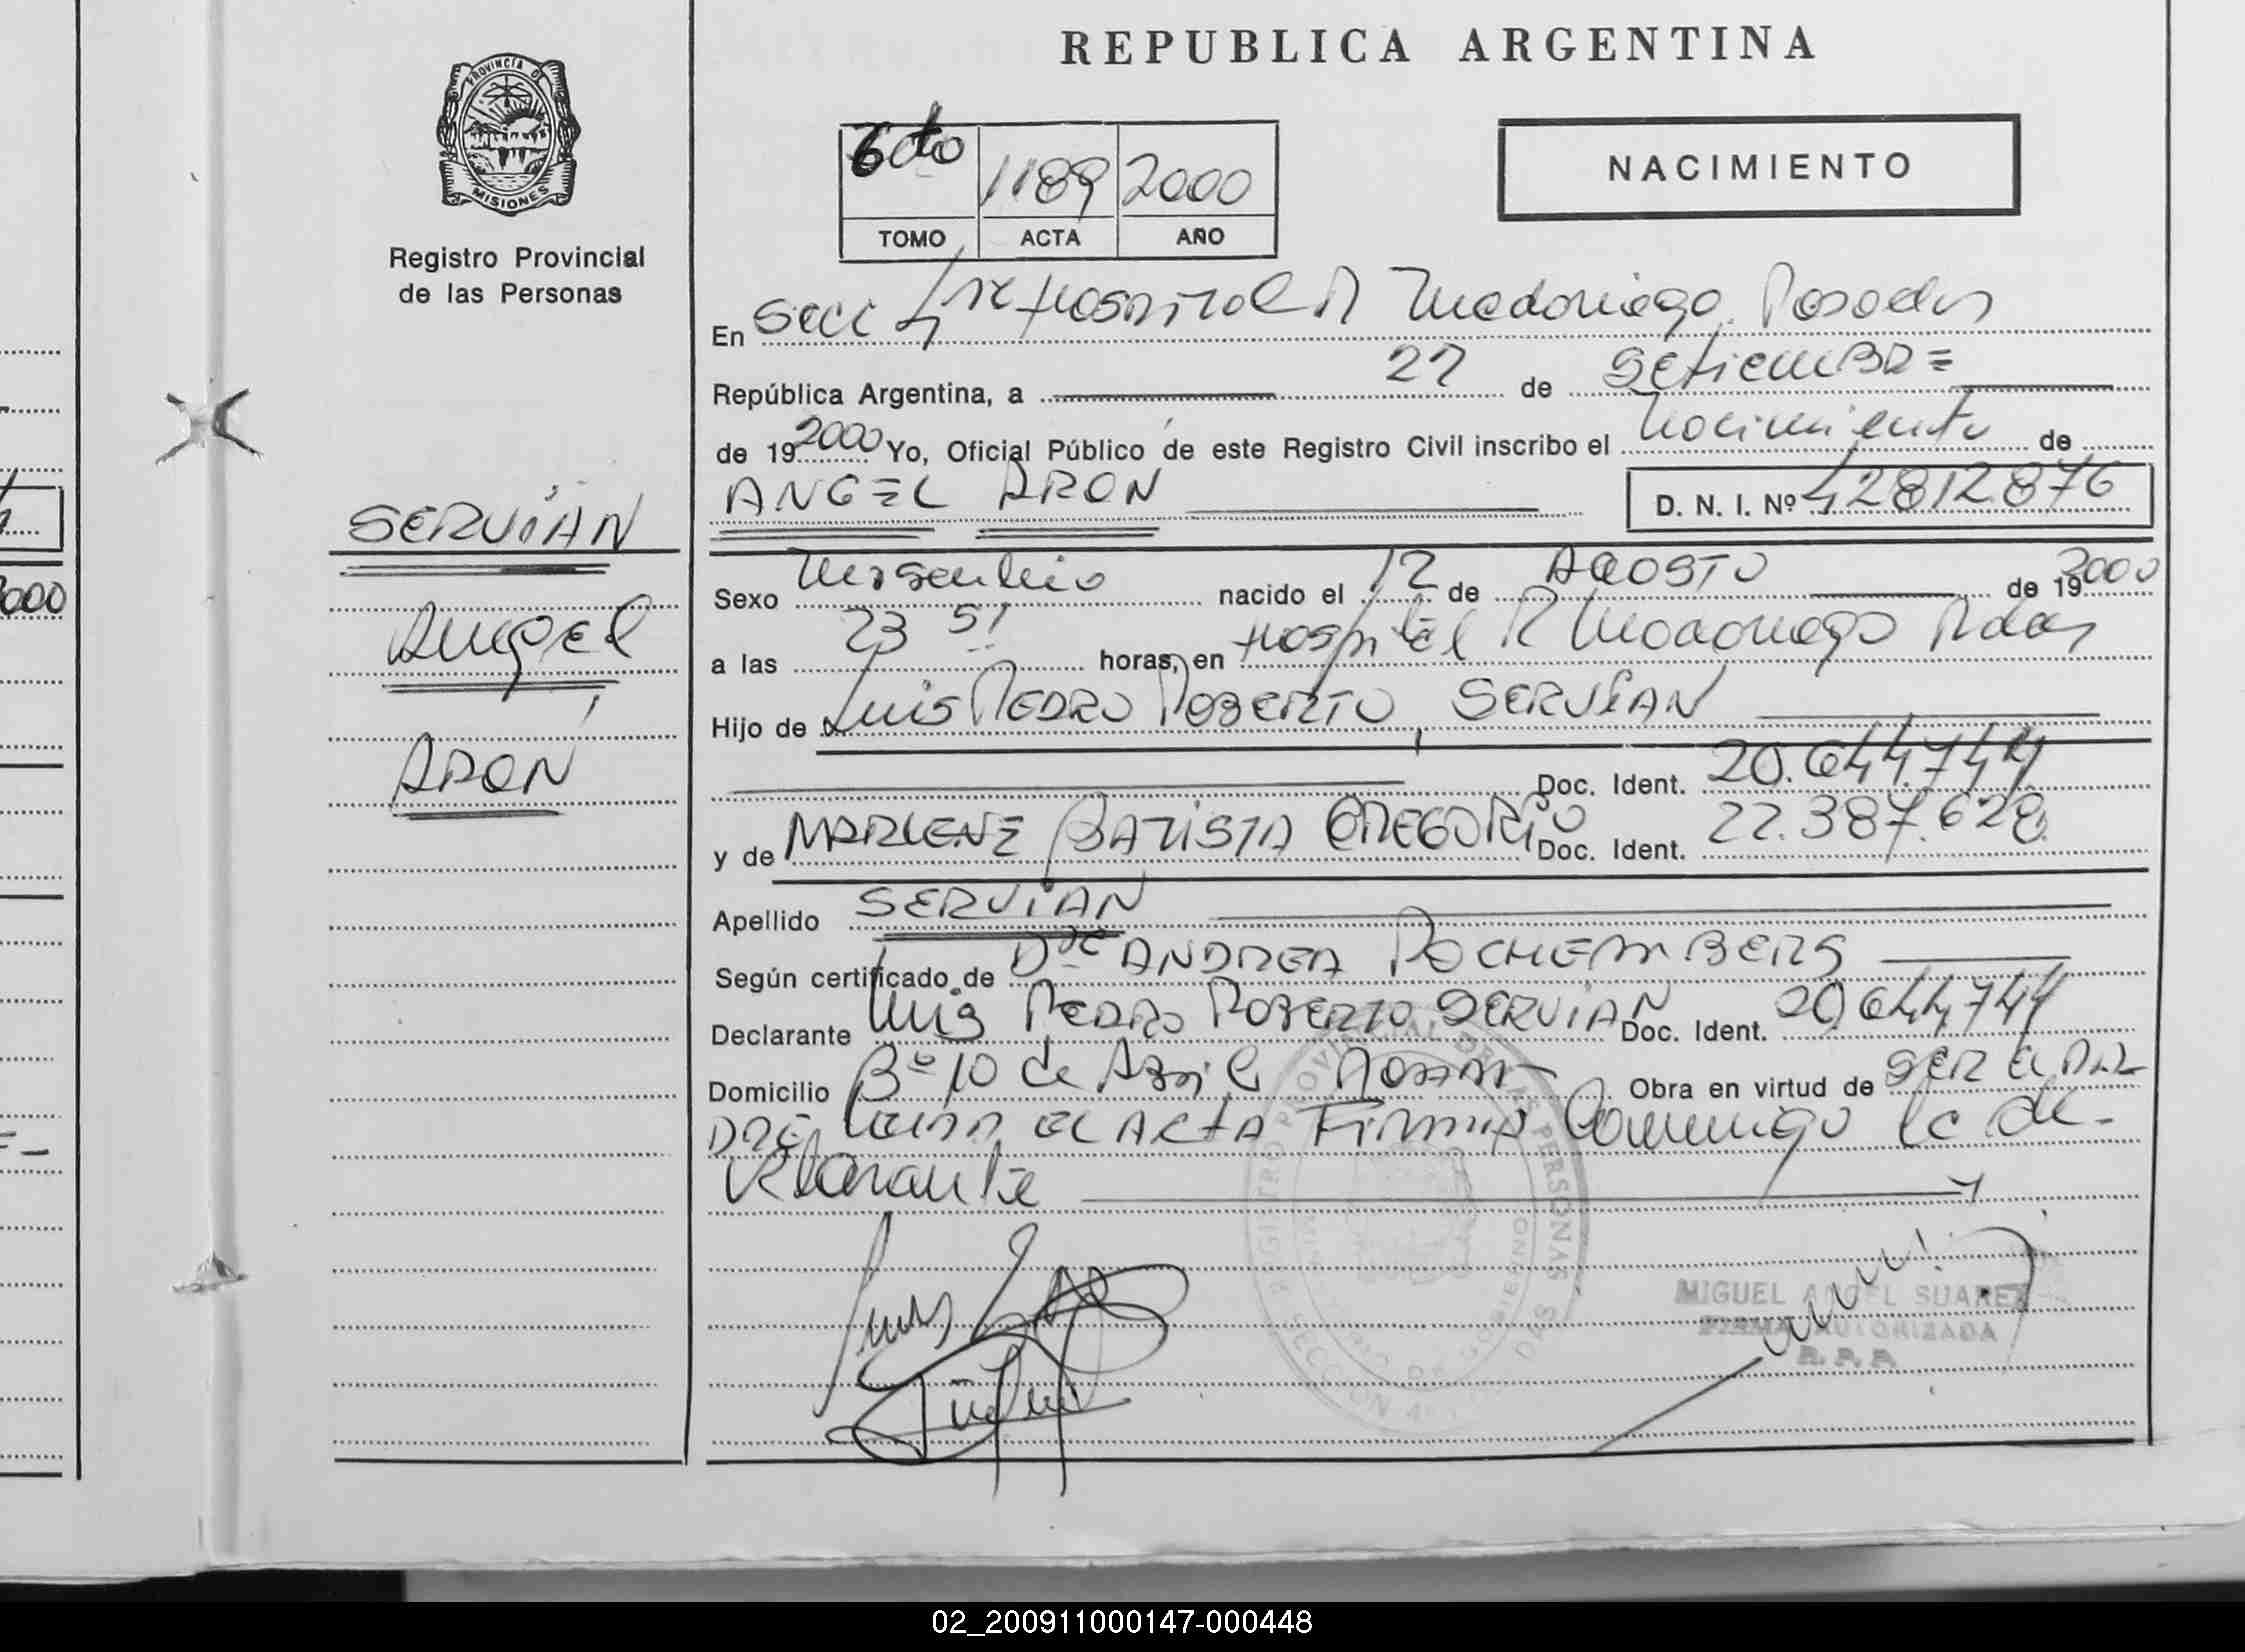 REPUBLICA ARGENTINA
PROVINCIA DE
MISIONES
Registro Provincial
de las Personas
6to 1189 2000
TOMO ACTA AÑO
NACIMIENTO
En Secc 4ta Hospital R Madariaga Posadas
República Argentina, a 27 de Setiembre
de 19 2000 Yo, Oficial Público de este Registro Civil inscribo el Nacimiento de
ANGEL ARON D. N. I. Nº 42812876
SERVIAN
Angel
ARON
Sexo Masculino nacido el 12 de AGOSTO de 19 2000
a las 23 51 horas, en Hospital R Madariaga Pdas
Hijo de Luis PEDRO ROBERTO SERVIAN
Doc. Ident. 20.644.744
y de MARLENE BATISTA GREGORIO Doc. Ident. 22.387.628
Apellido SERVIAN
Según certificado de Dra ANDREA ROCHEMBERG
Declarante Luis PEDRO ROBERTO SERVIAN Doc. Ident. 20.644.744
Domicilio Bº 10 de Abril Obra en virtud de SER EL PA
DRE EL ACTA FIRMA Conmigo el de-
clarante
REGISTRO PROVINCIAL DE LAS PERSONAS
MIGUEL ANGEL SUAREZ
FIRMA AUTORIZADA
R. P. P.
2000
02_200911000147-000448